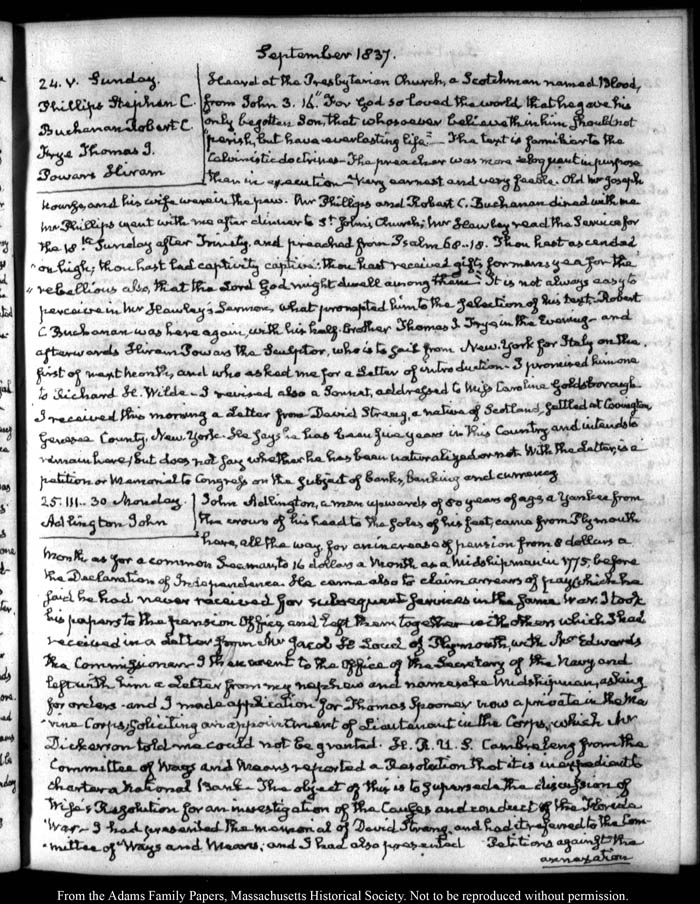 September 1837.
24. V. Sunday.
Phillips Stephen C.
Buchanan Robert C.
Frye Thomas I.
Powars Hiram
Heard at the Presbyterian Church, a Scotchman named Blood,
from John 3. 16. "For God so loved the world, that he gave his
only begotten Son, that whosoever believeth in him should not
"perish, but have everlasting life." The text is familiar to the
Calvinistic doctrines— The preacher was more eloquent in purpose
than in execution— Very earnest and very feeble. Old Mr Joseph
and his wife were in the pew. Mr Phillips and Robert C. Buchanan dined with me
Mr Phillips went with me after dinner to St John's Church; Mr Hawley read the Service for
the 18th Sunday after Trinity, and preached from Psalm 68-18. Thou hast ascended
"on high; thou hast led captivity captive: thou hast received gifts for men; yea for the
"rebellious also, that the Lord God might dwell among them." It is not always easy to
perceive in Mr Hawley's Sermons, what prompted him to the selection of his text. Robert
C Buchanan was here again, with his half-brother Thomas I Frye in the Evening— and
afterwards Hiram Powars the Sculptor, who is to sail from New-York for Italy on the
first of next month, and who asked me for a Letter of introduction— I promised him one
to Richard H. Wilde— I revised also a Sonnet, addressed to Miss Caroline Goldsborough
I received this morning a Letter from David Strang, a native of Scotland, settled at Covington,
Genesee County, New York. He says he has been five years in this Country and intends to
remain here; but does not say whether he has been naturalized or not. With the Letter, is a
petition or Memorial to Congress on the subject of banks, banking and currency
25. III.. 30 Monday.
Adlington John
John Adlington, a man upwards of 80 years of age a Yankee from
the crown of his head to the soles of his feet, came from Plymouth
here, all the way for an increase of pension from 8 dollars a
month as for a common Seaman, to 16 dollars a month as a Midshipman in 1775, before
the Declaration of Independence. He came also to claim arrears of pay which he
said he had never received for subsequent services in the same War. I took
his papers to the pension Office, and left them together with others which I had
received in a Letter from Mr Jacob H Loud of Plymouth, with Mr Edwards
the Commissioner— I then went to the Office of the Secretary of the Navy and
left with him a Letter from my nephew and namesake Midshipman, asking
for orders— and I made application for Thomas Spooner now a private in the Ma
rine Corps, soliciting an appointment of Lieutenant in the Corps, which Mr
Dickerson told me could not be granted. H. R. U. S. Cambreleng from the
Committee of Ways and Means reported a Resolution that it is inexpedient to
charter a National Bank— The object of this is to supersede the discussion of
Wise's Resolution for an investigation of the Causes and conduct of the Florida
War— I had presented the memorial of David Strang, and had it referred to the Com
mittee of Ways and Means; and I had also presented Petitions against the
annexation
From the Adams Family Papers, Massachusetts Historical Society. Not to be reproduced without permission.